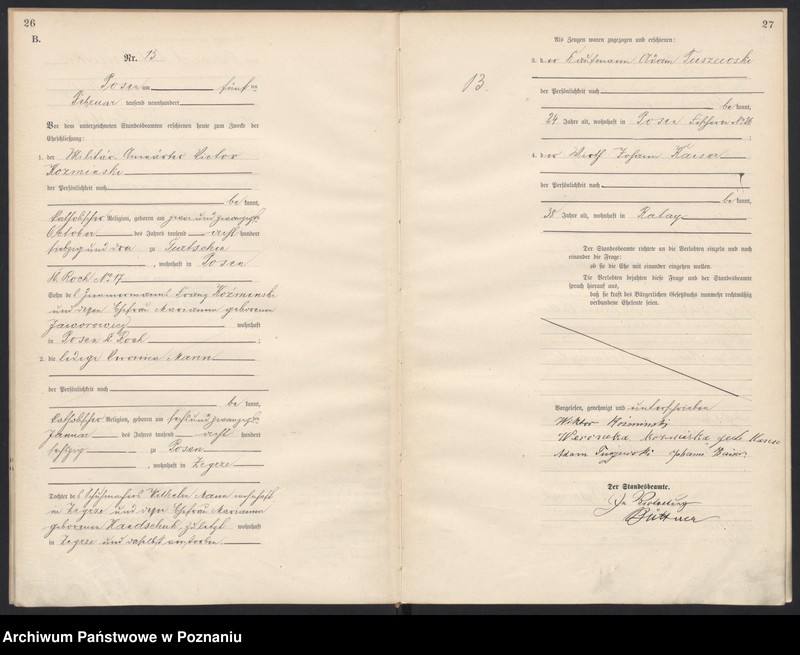 26
B.
Nr. 13
Posen am fünften
Februar tausend neunhundert
Vor dem unterzeichneten Standesbeamten erschienen heute zum Zwecke der
Eheschließung:
1. der Militär-Anwärter Victor
Kozminski
der Persönlichkeit nach
be kannt,
katholischer Religion, geboren am zwei und zwanzigsten
October des Jahres tausend acht hundert
siebzig und drei zu
, wohnhaft in Posen
St. Roch No. 17
Sohn des Franz Kozminski
und dessen Ehefrau Marianna geborenen
wohnhaft
in Posen St. Roch ;
2. die ledige Veronica Mann
der Persönlichkeit nach
be kannt,
katholischer Religion, geboren am sechs und zwanzigsten
Januar des Jahres tausend acht hundert
sechzig zu Posen
, wohnhaft in Zegrze
Tochter des Schuhmachers Wilhelm Mann wohnhaft
in Zegrze und dessen Ehefrau Marianna
geborenen Handschuh, zuletzt wohnhaft
in Zegrze und daselbst verstorben.
27
13.
Als Zeugen waren zugezogen und erschienen:
3. der Kaufmann Adam
der Persönlichkeit nach
be kannt,
24 Jahre alt, wohnhaft in Posen No. 26
;
4. der Wirth Johann Kaiser
der Persönlichkeit nach
be kannt,
38 Jahre alt, wohnhaft in Rataj
Der Standesbeamte richtete an die Verlobten einzeln und nach
einander die Frage:
ob sie die Ehe mit einander eingehen wollen.
Die Verlobten bejahten diese Frage und der Standesbeamte
sprach hierauf aus,
daß sie kraft des Bürgerlichen Gesetzbuchs nunmehr rechtmäßig
verbundene Eheleute seien.
Vorgelesen, genehmigt und unterschrieben
Wiktor Koźminski
Weronika Kozminska geb.
Adam Johann Kaiser
Der Standesbeamte.
In Vertretung
Büttner
Archiwum Państwowe w Poznaniu